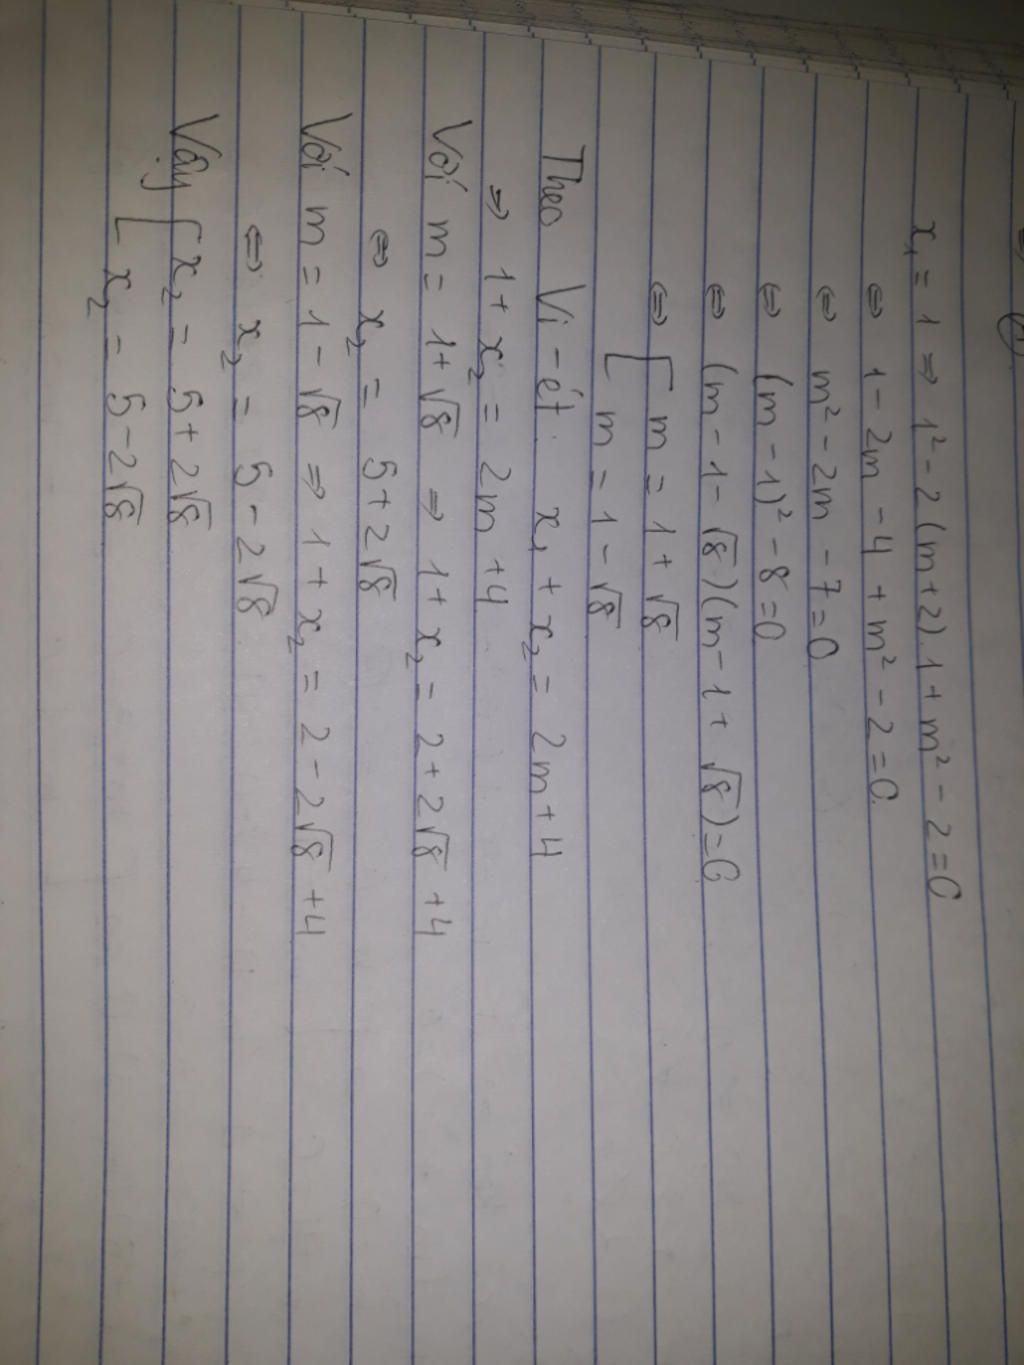 x₁ = 1 ⇒ 1² - 2(m+2).1 + m² - 2 = 0
⇔ 1 - 2m - 4 + m² - 2 = 0
⇔ m² - 2m - 7 = 0
⇔ (m - 1)² - 8 = 0
⇔ (m - 1 - √8)(m - 1 + √8) = 0
⇔ [ m = 1 + √8
m = 1 - √8
Theo Vi-ét: x₁ + x₂ = 2m + 4
⇒ 1 + x₂ = 2m + 4
Với m = 1 + √8 ⇒ 1 + x₂ = 2 + 2√8 + 4
⇔ x₂ = 5 + 2√8
Với m = 1 - √8 ⇒ 1 + x₂ = 2 - 2√8 + 4
⇔ x₂ = 5 - 2√8
Vậy [ x₂ = 5 + 2√8
x₂ = 5 - 2√8